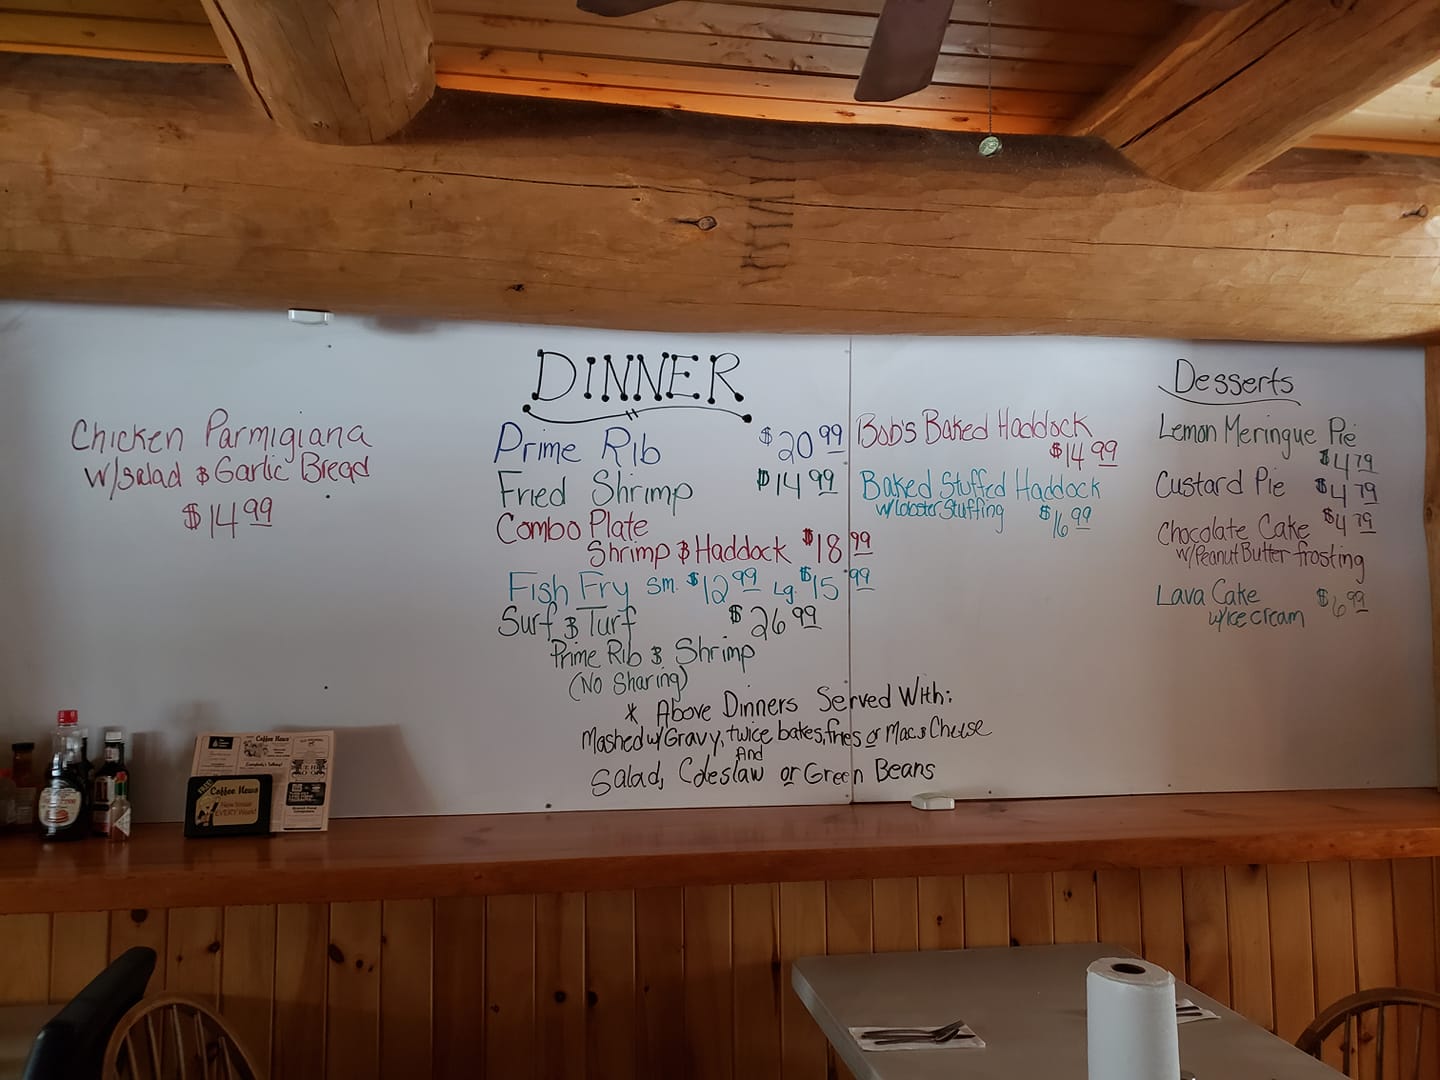 Chicken Parmigiana
w/Salad & Garlic Bread
$14 99
DINNER
Prime Rib $20 99
Fried Shrimp $14 99
Combo Plate
Shrimp & Haddock $18 99
Fish Fry Sm. $12 99 Lg. $15 99
Surf & Turf $26 99
Prime Rib & Shrimp
(No Sharing)
Bob's Baked Haddock
$14 99
Baked Stuffed Haddock
w/Lobster Stuffing $16 99
* Above Dinners Served With:
Mashed w/Gravy, twice bakes, fries or Mac & Cheese
And
Salad, Coleslaw or Green Beans
Desserts
Lemon Meringue Pie
$4 79
Custard Pie $4 79
Chocolate Cake $4 79
w/Peanut Butter frosting
Lava Cake $6 99
w/Ice cream
Coffee News
Coffee News
New Issue
EVERY Week!